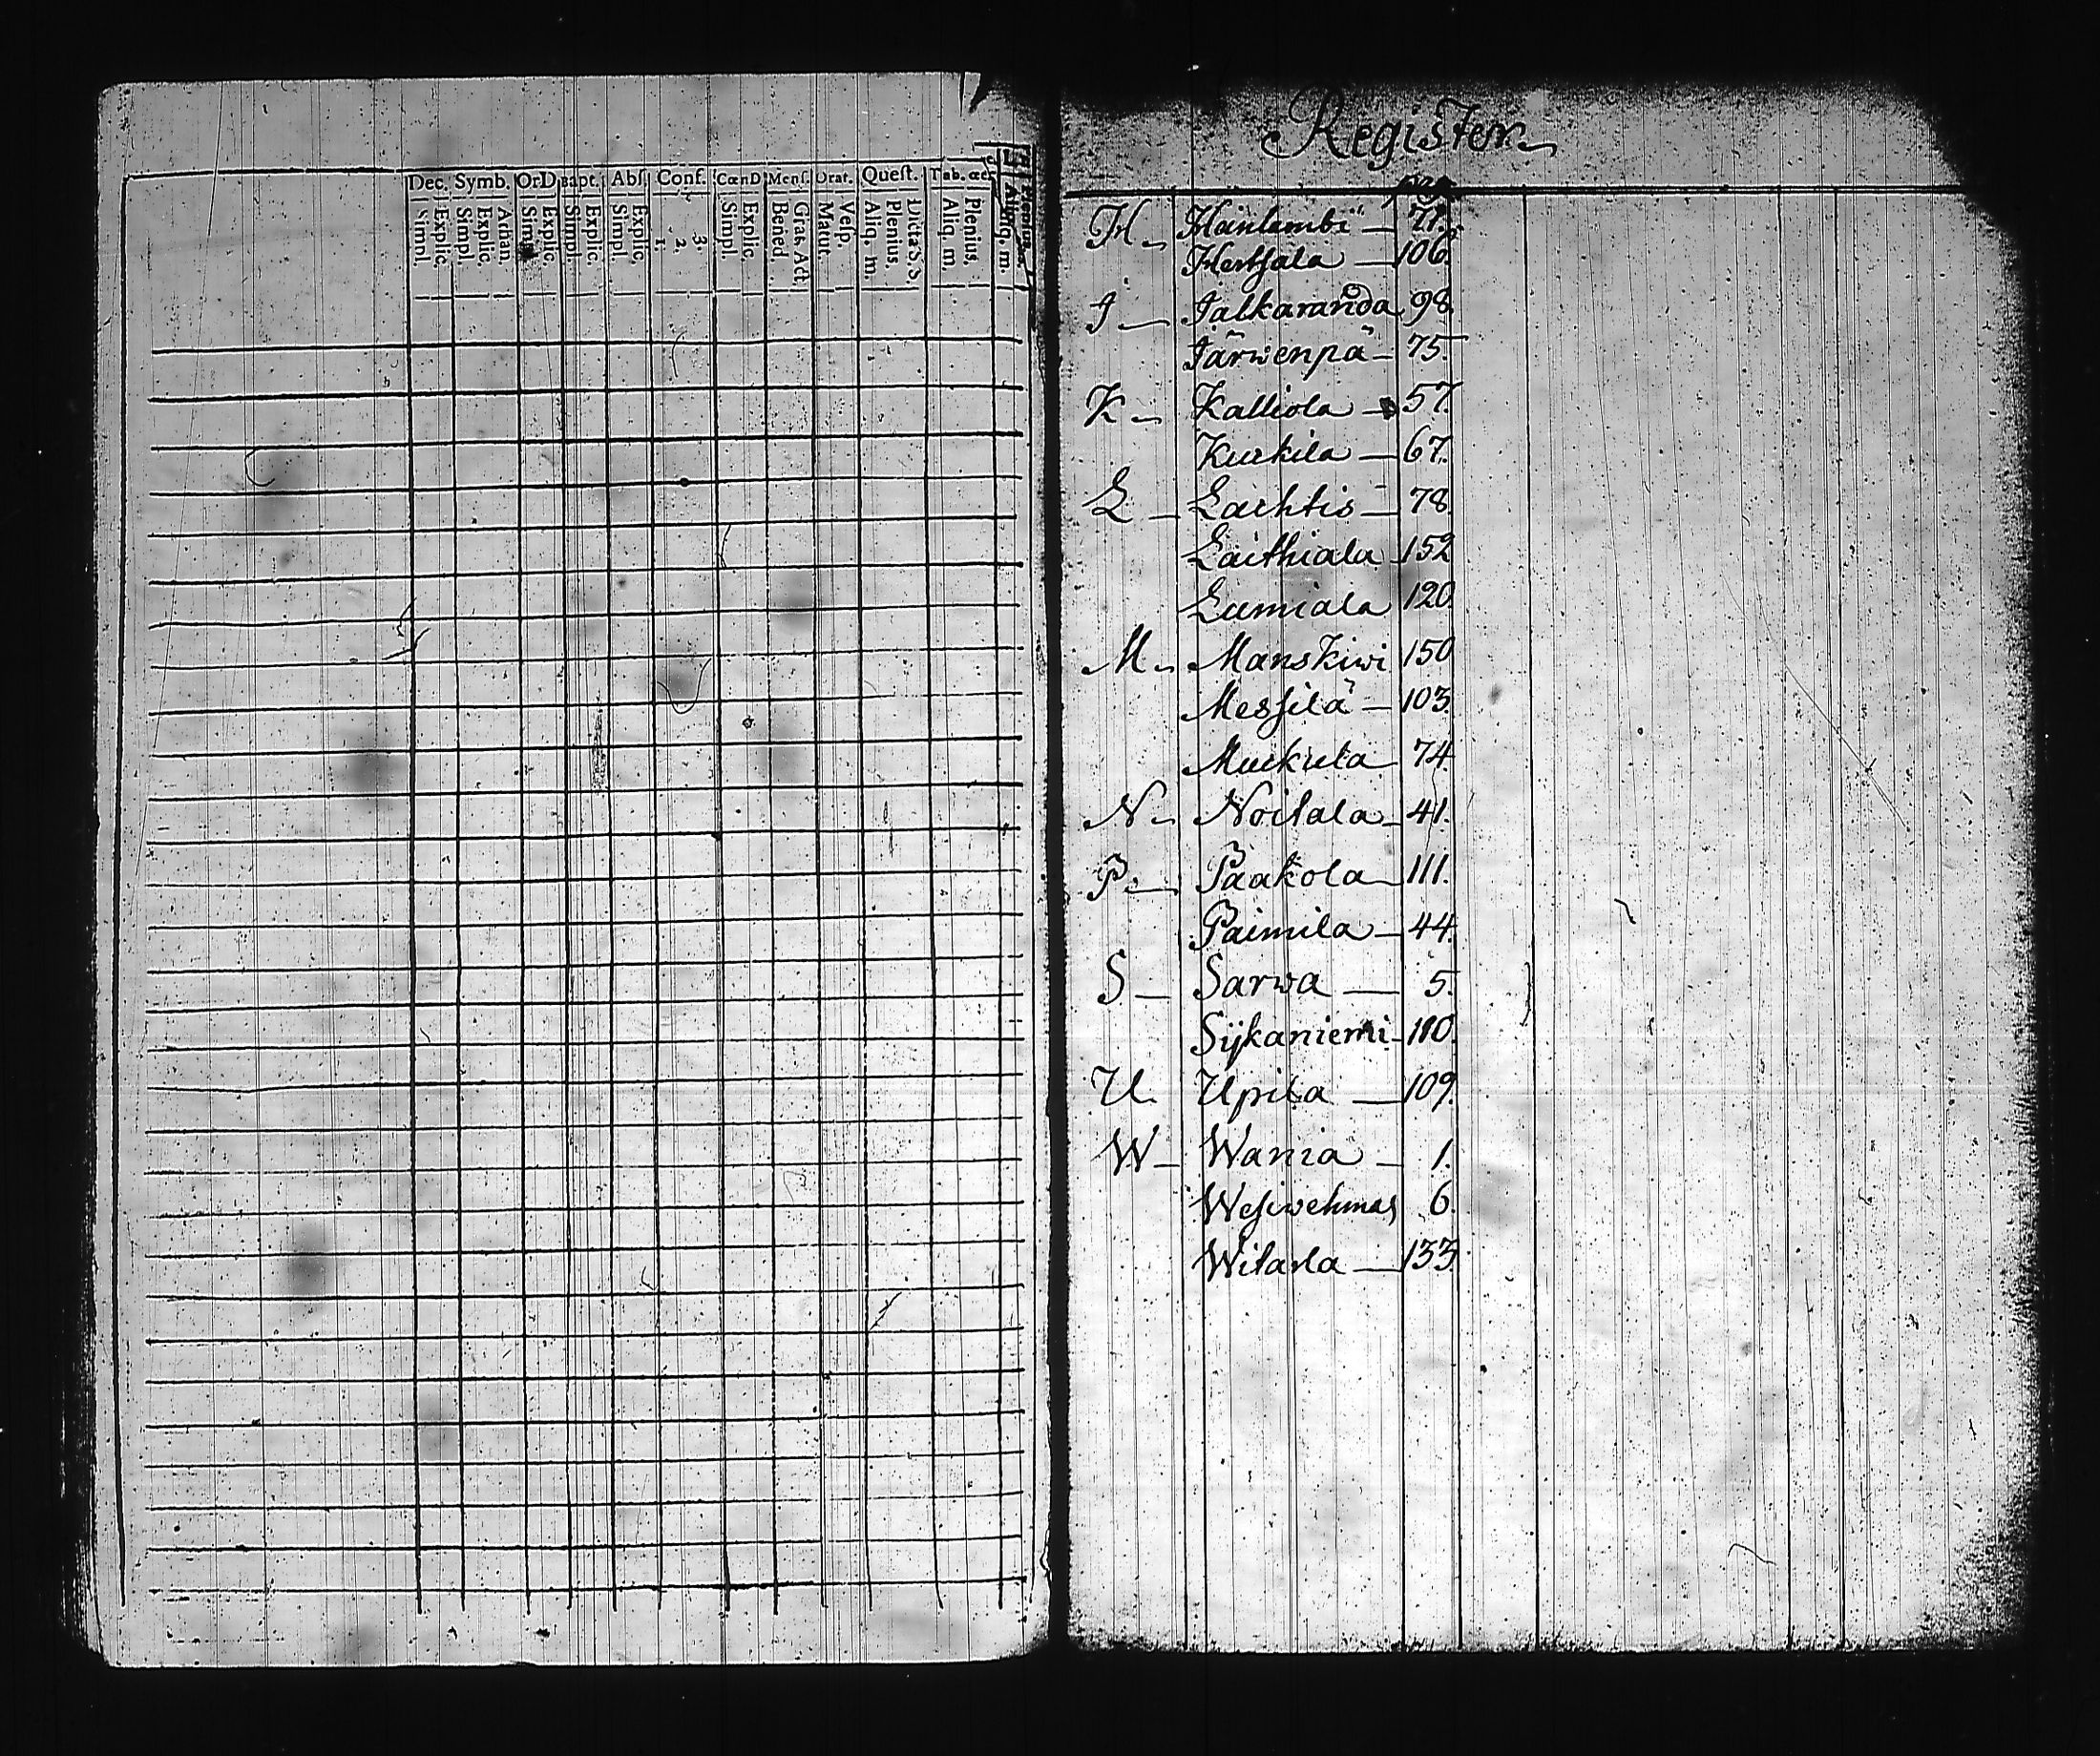 Dec. Symb. OrD Bapt. Abſ. Conf. CœnD Menſ. Orat. Queſt. Tab. œc.
Simpl. Explic. Simpl. Explic. Athan. Simpl. Explic. Simpl. Explic. Simpl. Explic. 1. 2. 3. Simpl. Explic. Bened. Grat. Act. Matut. Veſp. Aliq. m. Plenius. Dicta S. S. Aliq. m. Plenius. Aliq. m.
Register
pag.
H Hainlambi 71.
Hertsala 106.
J Jalkaranda 98
Järwenpä 75.
K Kalliola 57.
Kurkila 67.
L Lachtis 78
Laithiala 152
Lunniala 120.
M Manskiwi 150
Messilä 103.
Muckula 74
N Noitala 41.
P. Paakola 111.
Paimila 44.
S Sarwa 5.
Sijkaniemi 110.
U Upila 109.
W Wania 1.
Wesiwehmas 6.
Witarla 133.